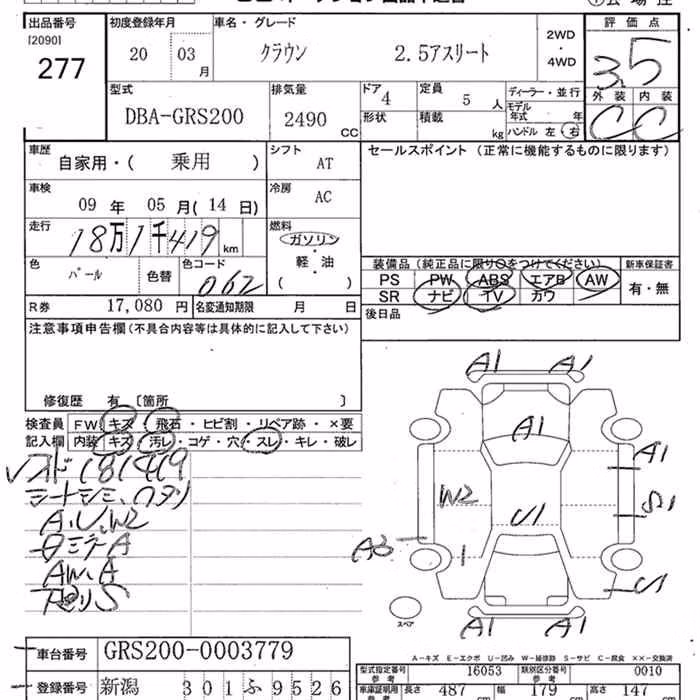 出品番号 初度登録年月 車名・グレード 2WD・4WD 評価点
[2090]
277
20 03 月
クラウン 2.5アスリート
3.5
外装 内装
C C
型式 排気量 ドア 定員 ディーラー・並行
DBA-GRS200 2490 CC 4 5 人
形状 積載 kg モデル年式 年
ハンドル 左 右
車歴 シフト セールスポイント(正常に機能するものに限ります)
自家用・( 乗用 ) AT
車検 冷房
09 年 05 月(14 日) AC
走行 燃料
18万1千419 km ガソリン
軽・油
( )
色 色替 色コード
パール 062
装備品(純正品に限り○をつけてください) 新車保証書
PS PW ABS エアB AW 有・無
SR ナビ TV カワ
R券 17,080 円 名変通知期限 月 日
後日品
注意事項申告欄(不具合内容等は具体的に記入して下さい)
修復歴 有 [箇所 ]
検査員 FW キズ・飛石・ヒビ割・リペア跡・×要
記入欄 内装 キズ・汚レ・コゲ・穴・スレ・キレ・破レ
181419
A.U.W2
A
AW.A
S
A1 A1
A1
A1
W2
S1
U1
A3
U1
A1 A1
スペア
A-キズ E-エクボ U-凹み W-補修跡 S-サビ C-腐食 ××-交換済
車台番号 GRS200-0003779
型式指定番号 参考 16053 類別区分番号 参考 0010
登録番号 新潟 301 ふ 9526
車庫証明用 参考 長さ 487 cm 幅 179 cm 高さ 147